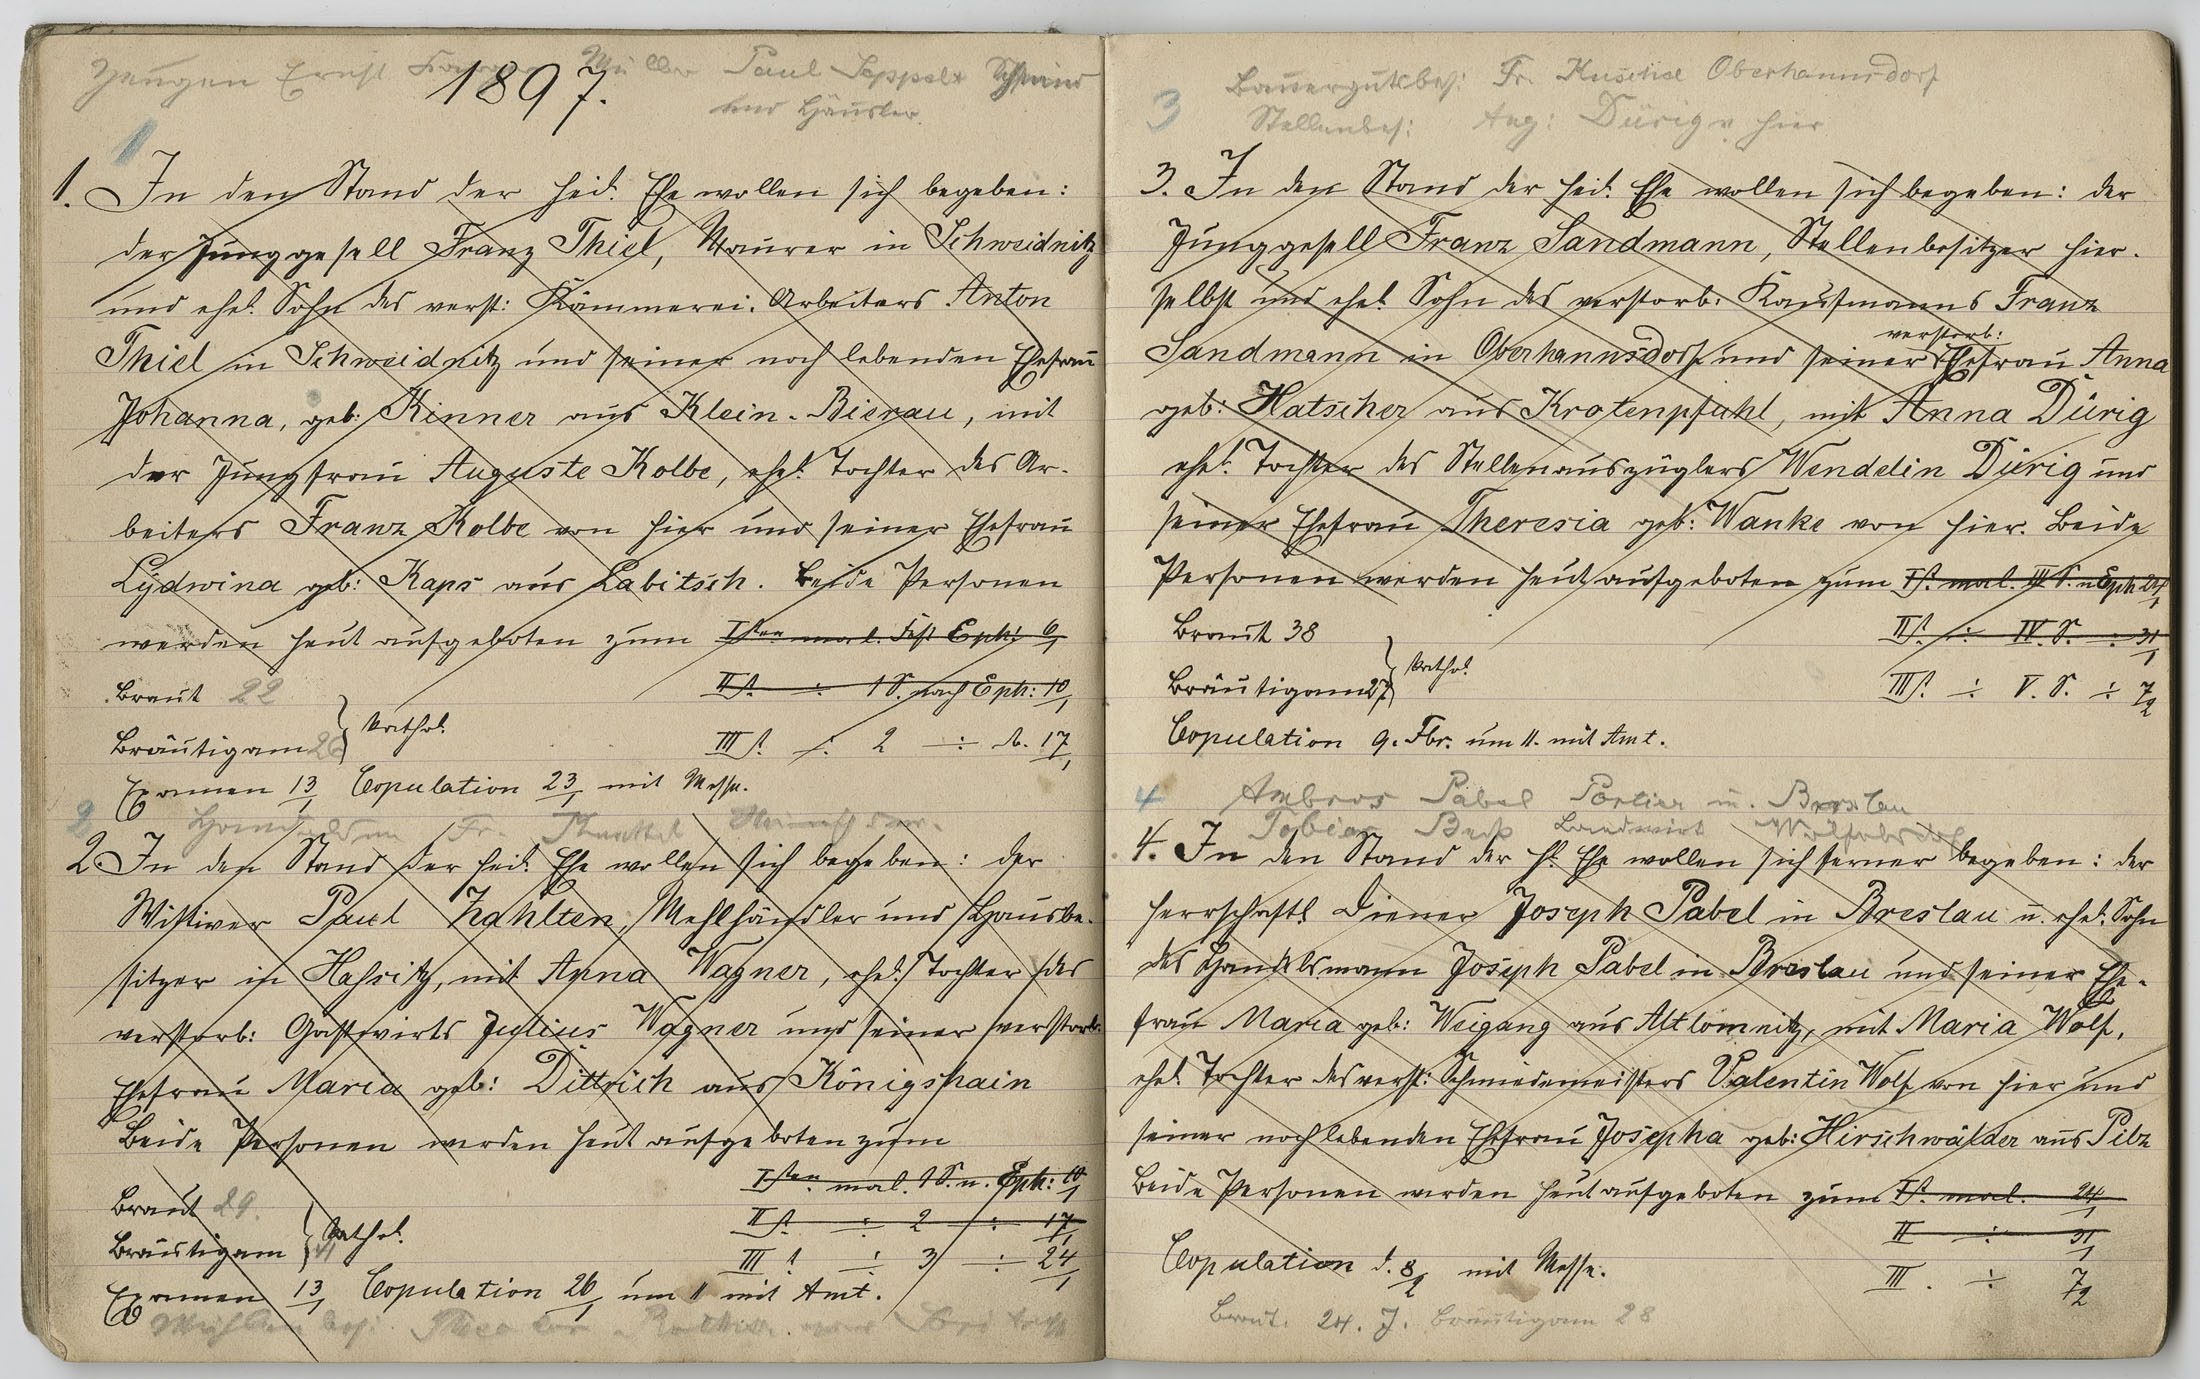 Zeugen Ernst Müller Paul Seppelt Schmied
1897.
und Häusler.
1
1. In den Stand der heil. Ehe wollen sich begeben:
der Junggesell Franz Thiel, Maurer in Schweidnitz
und ehel. Sohn des verst: Kämmerei-Arbeiters Anton
Thiel in Schweidnitz und seiner noch lebenden Ehefrau
Johanna, geb: Kinner aus Klein-Bierau, mit
der Jungfrau Auguste Kolbe, ehel. Tochter des Ar-
beiters Franz Kolbe von hier und seiner Ehefrau
Lydwina geb: Kaps aus Labitsch. Beide Personen
werden heut aufgeboten zum Isten mal. Fest Eph: 6/1
Braut 22 IIt. ÷ 1 S. nach Eph: 10/1
Bräutigam 26 } kathol. IIIt. ÷ 2 ÷ d. 17/1
Examen 13/1 Copulation 23/1 mit Messe.
2 Fr.
2. In den Stand der heil. Ehe wollen sich begeben: der
Wittwer Paul Zahlten, Mehlhändler und Hausbe-
sitzer in Hassitz, mit Anna Wagner, ehel. Tochter des
verstorb: Gastwirts Julius Wagner und seiner verstorb:
Ehefrau Maria geb: Dittrich aus Königshain
Beide Personen werden heut aufgeboten zum
Isten mal. 1 S. n. Eph: 10/1
Braut 29. IIt ÷ 2 ÷ 17/1
Bräutigam 41 } kathol. IIIt ÷ 3 ÷ 24/1
Examen 13/1 Copulation 26/1 um 11 mit Amt.
Bauergutsbes: Fr. Kuschel Oberhannsdorf
3
Stellenbes: Aug: Dürig v. hier
3. In den Stand der heil. Ehe wollen sich begeben: der
Junggesell Franz Sandmann, Stellenbesitzer hier-
selbst und ehel. Sohn des verstorb: Kaufmanns Franz
verstorb:
Sandmann in Oberhannsdorf und seiner Ehefrau Anna
geb: Hatscher aus Krotenpfuhl, mit Anna Dürig
ehel. Tochter des Stellenauszüglers Wendelin Dürig und
seiner Ehefrau Theresia geb: Wanke von hier. Beide
Personen werden heut aufgeboten zum It. mal. III S. n Eph 24/1
Braut 38 IIt. ÷ IV. S. ÷ 31/1
Bräutigam 27 } kathol. IIIt. ÷ V. S. ÷ 7/2
Copulation 9. Fbr. um 11. mit Amt.
4 Ambros Pabel Portier in Breslau
Landwirt
4. In den Stand der hl. Ehe wollen sich ferner begeben: der
herrschaftl. Diener Joseph Pabel in Breslau u. ehel. Sohn
des Handelsmann Joseph Pabel in Breslau und seiner Ehe-
frau Maria geb: Weigang aus Altlomnitz, mit Maria Wolf,
ehel. Tochter des verst: Schmiedemeisters Valentin Wolf von hier und
seiner noch lebenden Ehefrau Josepha geb: Hirschwälder aus Pilz
Beide Personen werden heut aufgeboten zum It. mal. 24/1
II ÷ 31/1
Copulation d. 8/2 mit Messe. III. ÷ 7/2
Braut. 24. J. Bräutigam 28